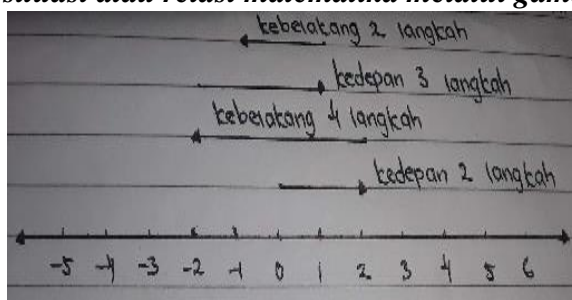 kebelakang 2 langkah
kedepan 3 langkah
kebelakang 4 langkah
kedepan 2 langkah
-5 -4 -3 -2 -1 0 1 2 3 4 5 6